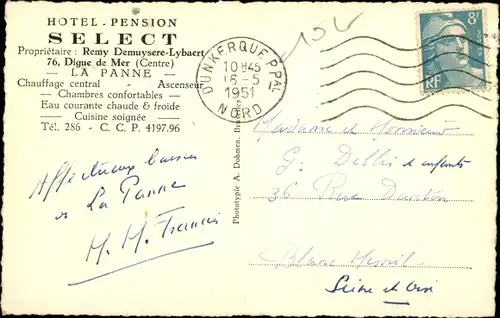 HOTEL - PENSION
SELECT
Propriétaire : Remy Demuysere-Lybaert
76, Digue de Mer (Centre)
— LA PANNE —
Chauffage central - Ascenseur
— Chambres confortables —
Eau courante chaude & froide
— Cuisine soignée —
Tél. 286 - C. C. P. 4197.96
DUNKERQUE PPAL
10H45
16-5
1951
NORD
8F
RF
Phototypie A. Dohmen,
Affectueux baisers
de La Panne
M. M. Francis
Madame et Monsieur
G. et enfants
36 Rue Danton
Blanc Mesnil
Seine et Oise